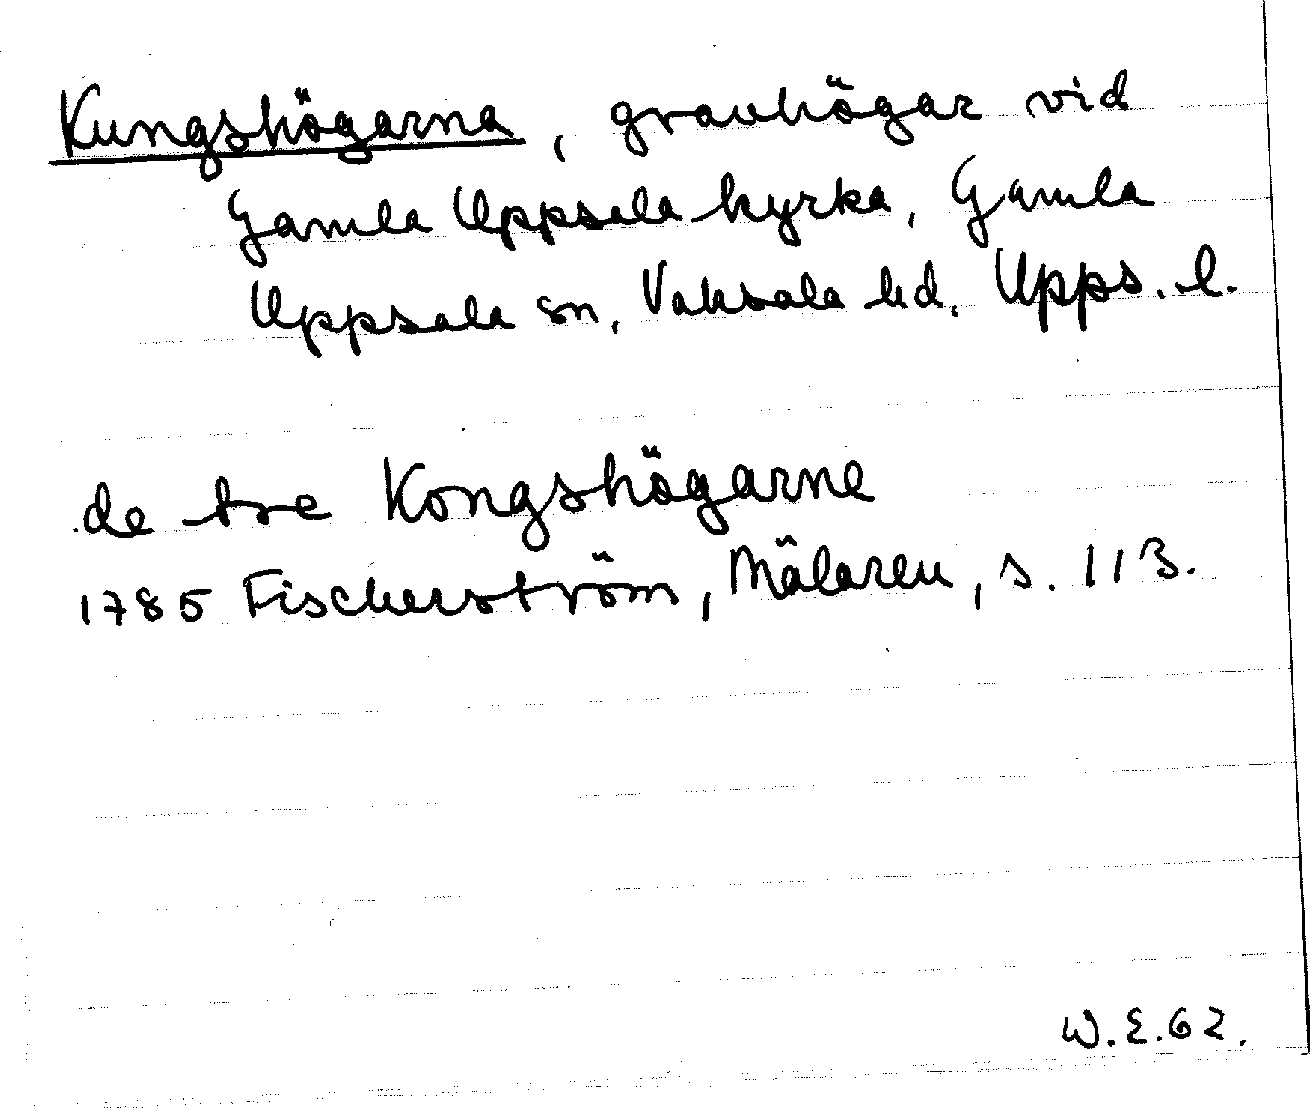 Kungshögarna, gravhögar vid
Gamla Uppsala kyrka, Gamla
Uppsala sn, Vaksala hd, Upps. l.
de tre Kongshögarne
1785 Fischerström, Mälaren, s. 113.
W.E.62.